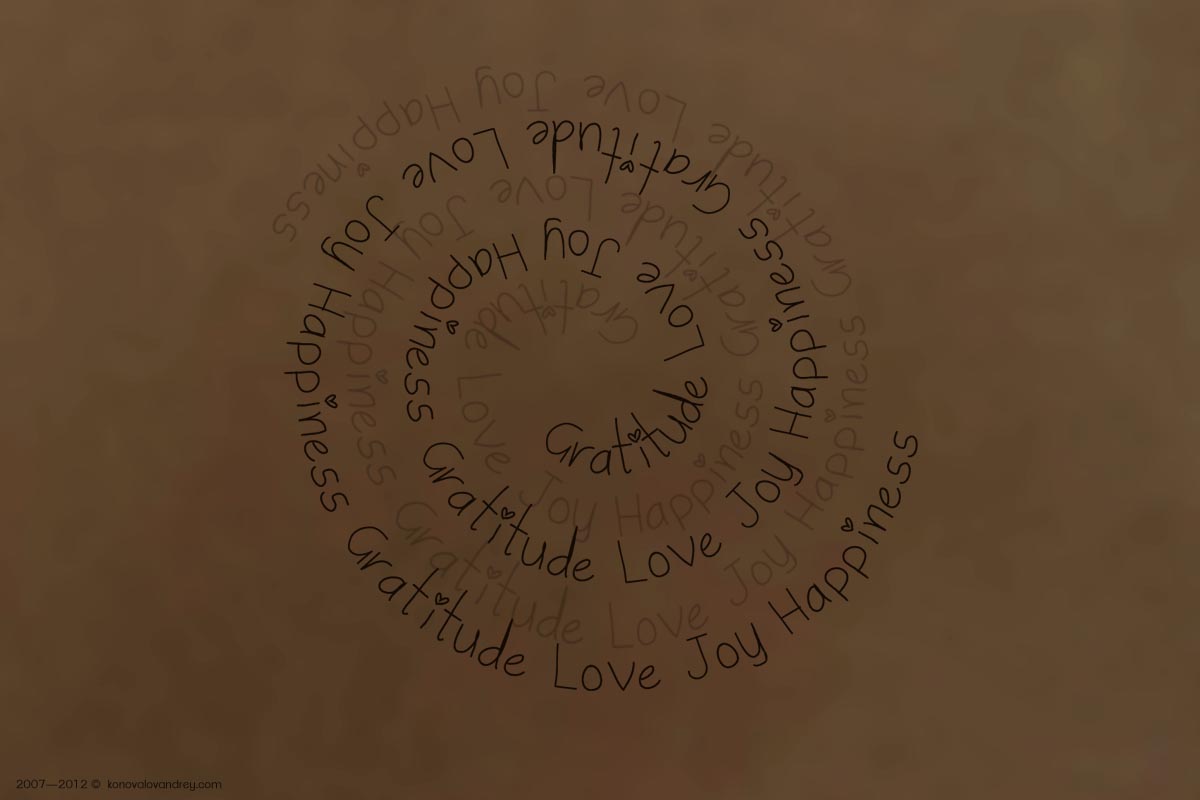 Gratitude Love Joy Happiness Gratitude Love Joy Happiness Gratitude Love Joy Happiness Gratitude Love Joy Happiness
Gratitude Love Joy Happiness Gratitude Love Joy Happiness Gratitude Love Joy Happiness Gratitude Love Joy Happiness
2007—2012 © konovalovandrey.com